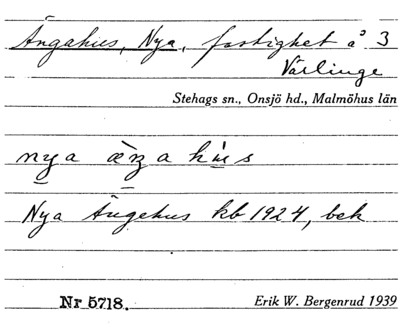 Ängahus, Nya, fastighet å 3
Värlinge
Stehags sn., Onsjö hd., Malmöhus län
nya æŋa hus
Nya Ängehus kb 1924, bek
Nr 5718. Erik W. Bergenrud 1939